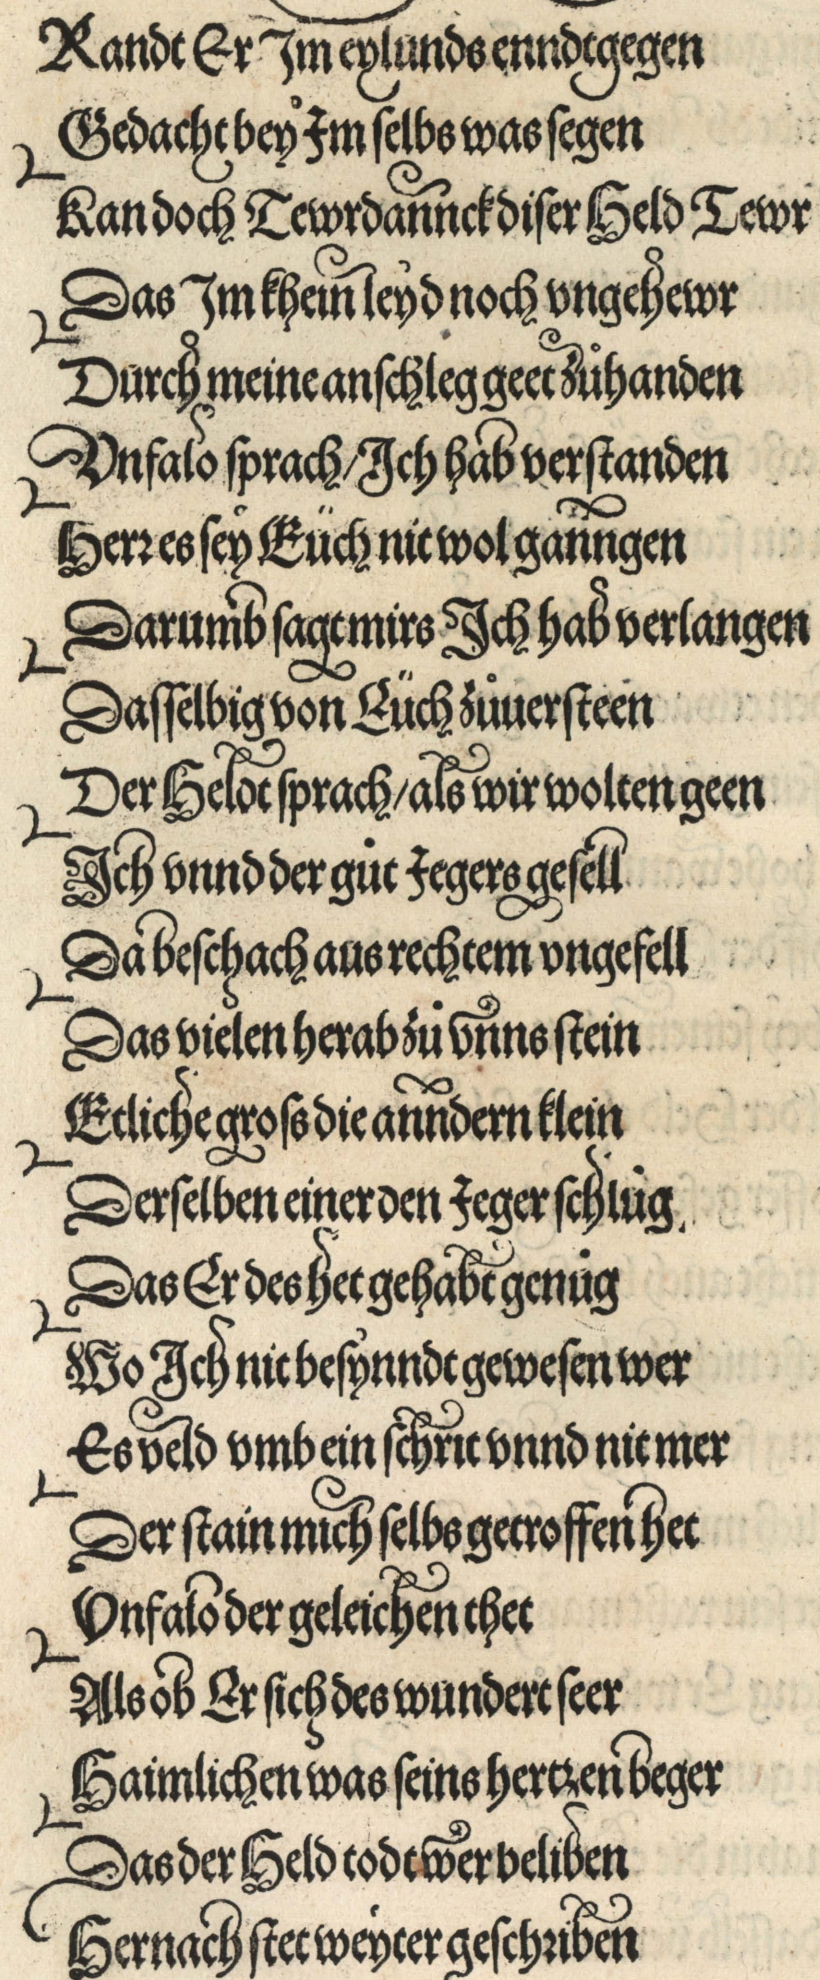 Randt Er Im eylunds enndtgegen
Gedacht bey Im selbs was segen
Kan doch Tewrdannck diser Held Tewr
Das Im khein leyd noch vngehewr
Durch meine anschleg geet zůhanden
Vnfalo sprach/ Ich hab verstanden
Herr es sey Eüch nit wol ganngen
Darumb sagt mirs Ich hab verlangen
Dasselbig von Eüch zůuersteen
Der Heldt sprach/ als wir wolten geen
Ich vnnd der gůt Jegers gesell
Da beschach aus rechtem vngefell
Das vielen herab zů vnns stein
Etliche gross die anndern klein
Derselben einer den Jeger schlůg.
Das Er des het gehabt genůg
Wo Ich nit besynndt gewesen wer
Es veld vmb ein schrit vnnd nit mer
Der stain mich selbs getroffen het
Vnfalo der geleichen thet
Als ob Er sich des wundert seer
Haimlichen was seins hertzen beger
Das der Held todt wer beliben
Hernach stet weyter geschriben